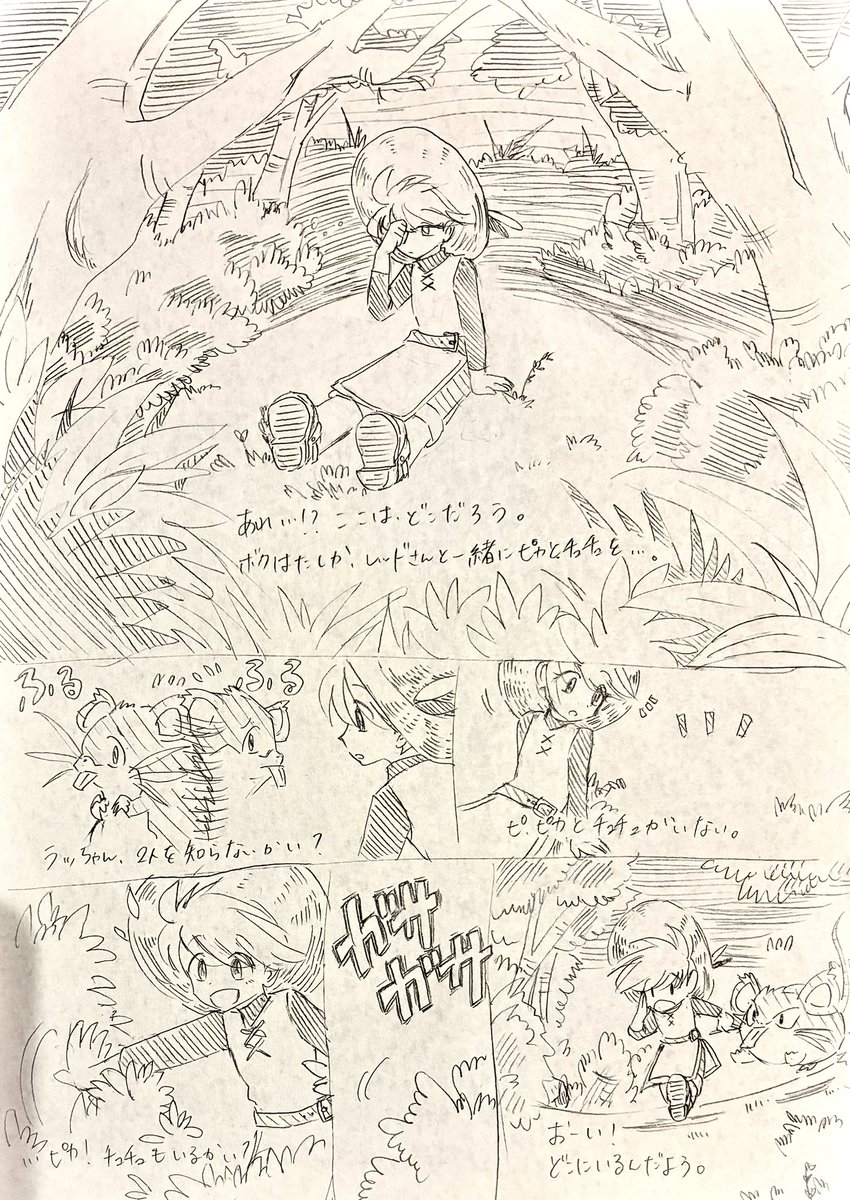 あれ…!? ここは、どこだろう。
ボクはたしか、レッドさんと一緒にピカとチュチュを…。
ピ、ピカとチュチュがいない。
ふる
ふる
ラッちゃん、2人を知らないかい？
おーい！
どこにいるんだよう。
ガサ
ガサ
…ピカ！チュチュもいるかい？